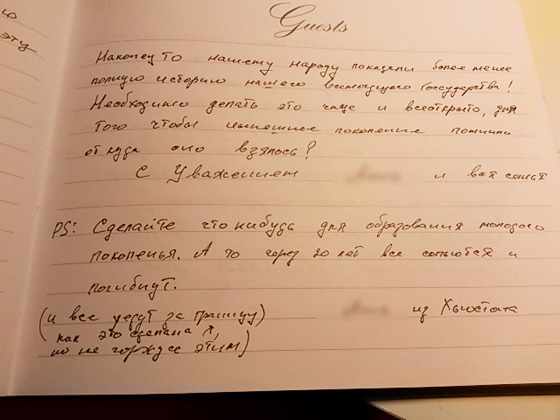 ю
эту
Guests
Наконец то нашему народу показали более менее
полную историю нашего настоящего Государства!
Необходимо делать это чаще и всеоткрыто, для
того чтобы нынешние поколение помнило
от куда оно взялось?
С Уважением и вся семья
PS: Сделайте что нибудь для образования молодого
поколенья. А то через 20 лет все сопьются и
погибнут.
(и все уедут за границу) из Хьюстона
(как это сделала я,
но не горжусь этим)